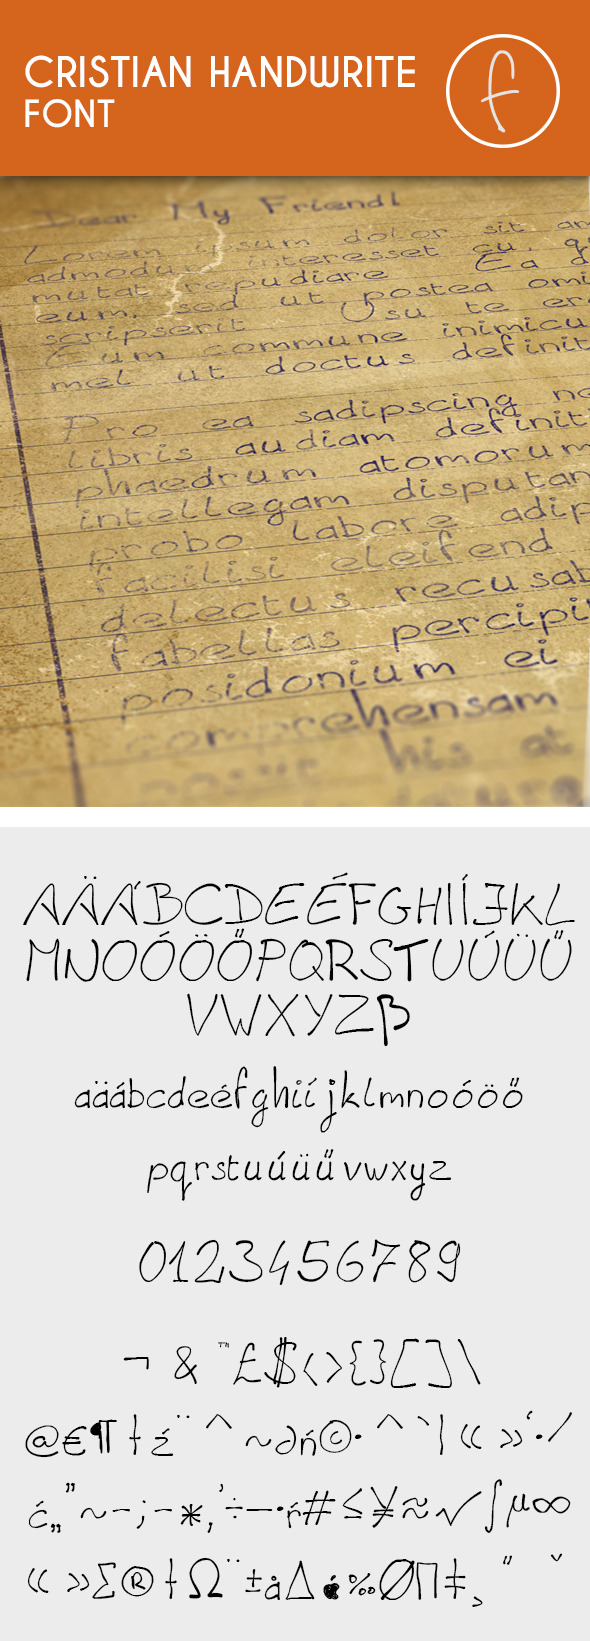 CRISTIAN HANDWRITE
FONT
f
Dear My Friend!
Lorem ipsum dolor sit
admodum interesset cu,
mutat repudiare Ea
eum, sed ut postea omi
scripserit Usu te er
Eum commune inimicu
mel ut doctus definit
Pro ea sadipscing ne
libris audiam definit
phaedrum atomorum
intellegam disputan
probo labore adip
facilisi eleifend
delectus recusab
fabellas percipi
posidonium ei
comprehensam
his at
AÄÁBCDEÉFGHIÍJKL
MNOÓÖŐPQRSTUÚÜŰ
VWXYZβ
aäábcdeéfghiíjklmnoóöő
pqrstuúüűvwxyz
0123456789
¬ & ™£$‹›{}[]\
@€¶†ź¨ˆ~∂ń©•^`|«»‘·/
ć„”~–;-*,’÷—·ŕ#≤¥≈√∫µ∞
«»∑®†Ω¨±å∆‰Ø∏‡¸"ˇ